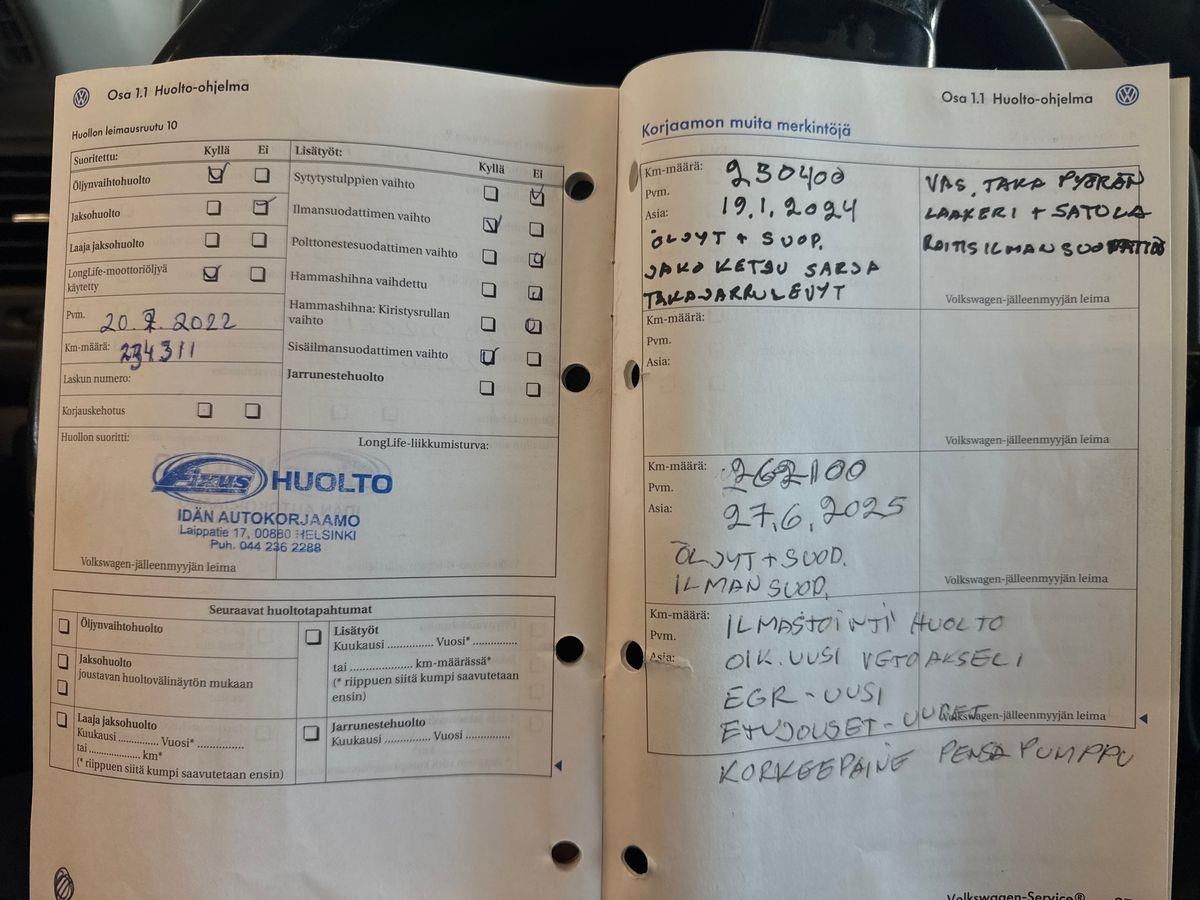 Osa 1.1 Huolto-ohjelma
Huollon leimausruutu 10
Suoritettu: Kyllä Ei
Öljynvaihtohuolto
Jaksohuolto
Laaja jaksohuolto
LongLife-moottoriöljyä
käytetty
Pvm. 20.7.2022
Km-määrä: 234311
Laskun numero:
Korjauskehotus
Lisätyöt: Kyllä Ei
Sytytystulppien vaihto
Ilmansuodattimen vaihto
Polttonestesuodattimen vaihto
Hammashihna vaihdettu
Hammashihna: Kiristysrullan
vaihto
Sisäilmansuodattimen vaihto
Jarrunestehuolto
Huollon suoritti:
LongLife-liikkumisturva:
Fixus HUOLTO
IDÄN AUTOKORJAAMO
Laippatie 17, 00880 HELSINKI
Puh. 044 236 2288
Volkswagen-jälleenmyyjän leima
Seuraavat huoltotapahtumat
Öljynvaihtohuolto
Jaksohuolto
joustavan huoltovälinäytön mukaan
Laaja jaksohuolto
Kuukausi .............. Vuosi* ...............
tai .......................... km*
(* riippuen siitä kumpi saavutetaan ensin)
Lisätyöt
Kuukausi .............. Vuosi* ..............
tai .................... km-määrässä*
(* riippuen siitä kumpi saavutetaan
ensin)
Jarrunestehuolto
Kuukausi .............. Vuosi ..............
Osa 1.1 Huolto-ohjelma
Korjaamon muita merkintöjä
Km-määrä: 230400
Pvm.
Asia: 19.1.2024
ÖLJYT + SUOD.
JAKO KETJU SARJA
TAKAJARRULEVYT
VAS. TAKA PYÖRÄN
LAAKERI + SATULA
Volkswagen-jälleenmyyjän leima
Km-määrä:
Pvm.
Asia:
Volkswagen-jälleenmyyjän leima
Km-määrä: 262100
Pvm.
Asia: 27.6.2025
ÖLJYT + SUOD.
ILMAN SUOD.
Volkswagen-jälleenmyyjän leima
Km-määrä: ILMASTOINTI HUOLTO
Pvm.
Asia: OIK. UUSI VETOAKSELI
EGR - UUSI
ETUJOUSET - UUDET
Volkswagen-jälleenmyyjän leima
KORKEEPAINE PENSA PUMPPU
Volkswagen-Service®